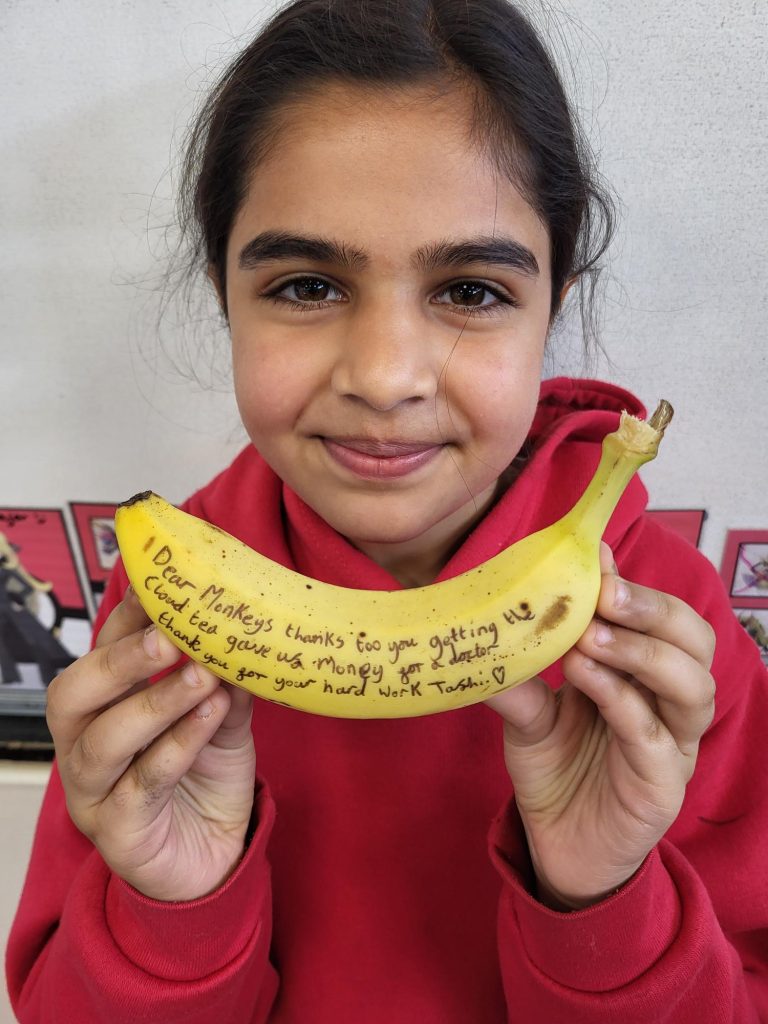 Dear Monkeys thanks too you getting the
Cloud tea gave us money for a doctor...
thank you for your hard work Tashi. ♡